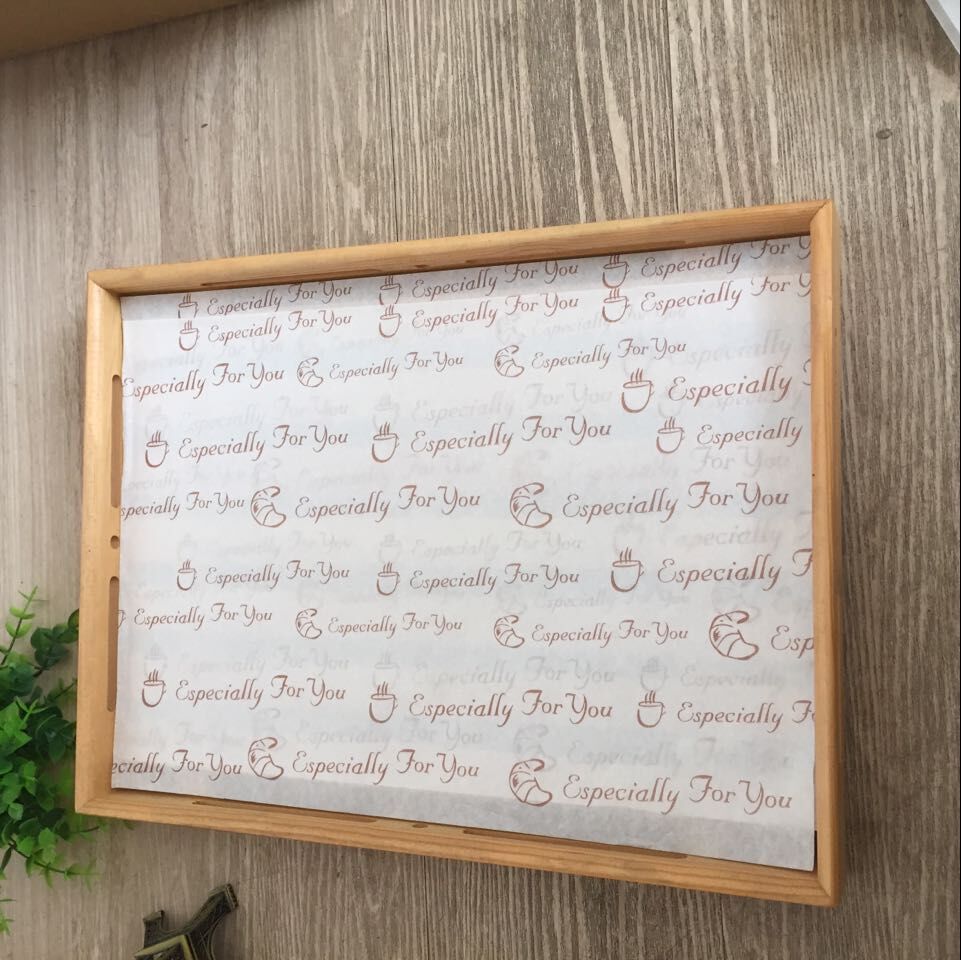 Especially For You Especially For You Especially For You
Especially For You Especially For You Especially For Y
Especially For You Especially For You Especially For You
Especially
Especially For You Especially For You Especially
specially For You Especially For You Especially For You
Especially For You Especially For You Especially F
Especially For You Especially For You Especially For You Esp
Especially For You Especially For You Especially F
ecially For You Especially For You Especially For You